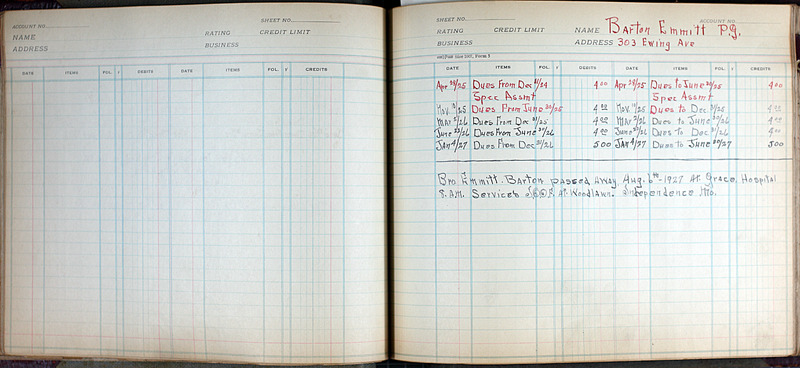 ACCOUNT NO.
SHEET NO.
NAME
RATING CREDIT LIMIT
ADDRESS
BUSINESS
DATE ITEMS FOL. √ DEBITS DATE ITEMS FOL. √ CREDITS
SHEET NO. ACCOUNT NO.
RATING CREDIT LIMIT NAME Barton Emmitt P.G.
BUSINESS ADDRESS 303 Ewing Ave
DATE ITEMS FOL. √ DEBITS DATE ITEMS FOL. √ CREDITS
Apr 28/25 Dues From Dec 31/24 4 00 Apr 28/25 Dues to June 30/25 4 00
Spec Assmt Spec Assmt
Nov. /25 Dues From June 30/25 4 00 Nov. /25 Dues to Dec 31/25 4 00
Mar /26 Dues From Dec 31/25 4 00 Mar /26 Dues to June 30/26 4 00
June /26 Dues From June 30/26 4 00 June /26 Dues to Dec 31/26 4 00
Jan 4/27 Dues From Dec 31/26 5 00 Jan 4/27 Dues to June 30/27 5 00
Bro Emmitt. Barton passed away, Aug. 6th-1927 At Grace, Hospital
8. A.M. Services At Woodlawn. Independence Mo.